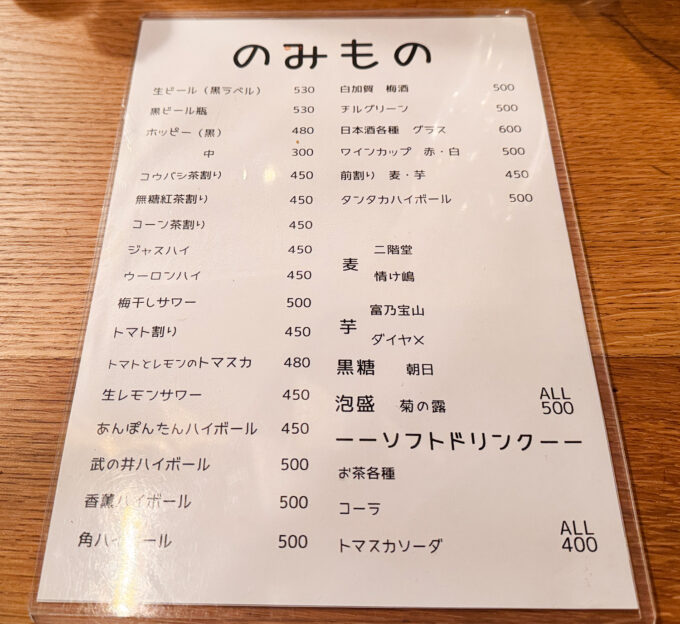 のみもの
生ビール（黒ラベル） 530
黒ビール瓶 530
ホッピー（黒） 480
中 300
コウバシ茶割り 450
無糖紅茶割り 450
コーン茶割り 450
ジャスハイ 450
ウーロンハイ 450
梅干しサワー 500
トマト割り 450
トマトとレモンのトマスカ 480
生レモンサワー 450
あんぽんたんハイボール 450
武の井ハイボール 500
香薫ハイボール 500
角ハイボール 500
白加賀 梅酒 500
チルグリーン 500
日本酒各種 グラス 600
ワインカップ 赤・白 500
前割り 麦・芋 450
タンタカハイボール 500
麦 二階堂
情け嶋
芋 富乃宝山
ダイヤ×
黒糖 朝日
泡盛 菊の露 ALL 500
ーーソフトドリンクーー
お茶各種
コーラ
トマスカソーダ ALL 400